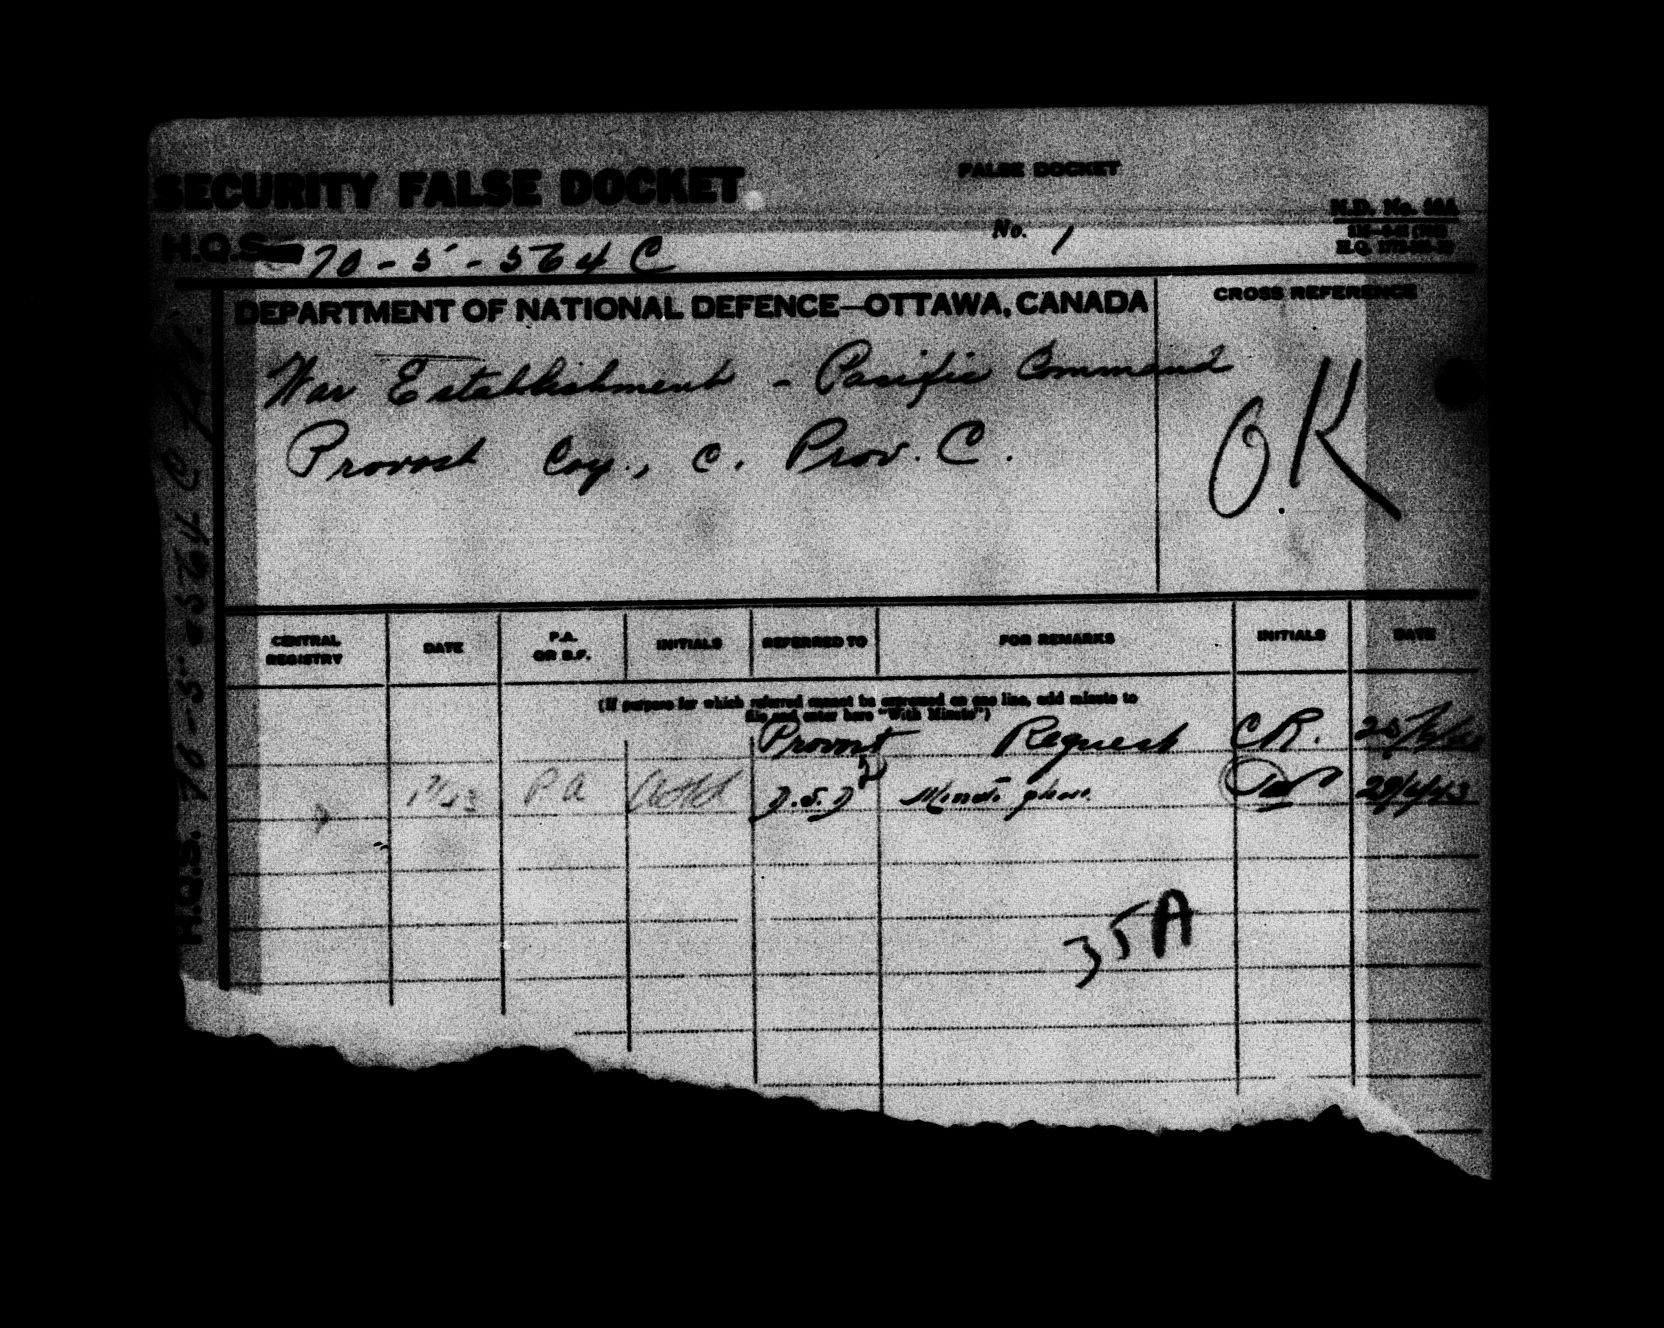 SECURITY FALSE DOCKET
FALSE DOCKET
N.D. No.
H.Q.S. 70-5-564 C
No. 1
DEPARTMENT OF NATIONAL DEFENCE—OTTAWA, CANADA
CROSS REFERENCE
War Establishment - Pacific Command
Provost Coy., C. Prov. C.
OK
CENTRAL REGISTRY DATE P.A. OR B.F. INITIALS REFERRED TO FOR REMARKS INITIALS DATE
(If purpose for which referred cannot be expressed on one line, add minute to
file and enter here "With Minute")
Provost Request C.R.
P A Minute please 29/4/43
35A
H.Q.S. 70-5-564 C